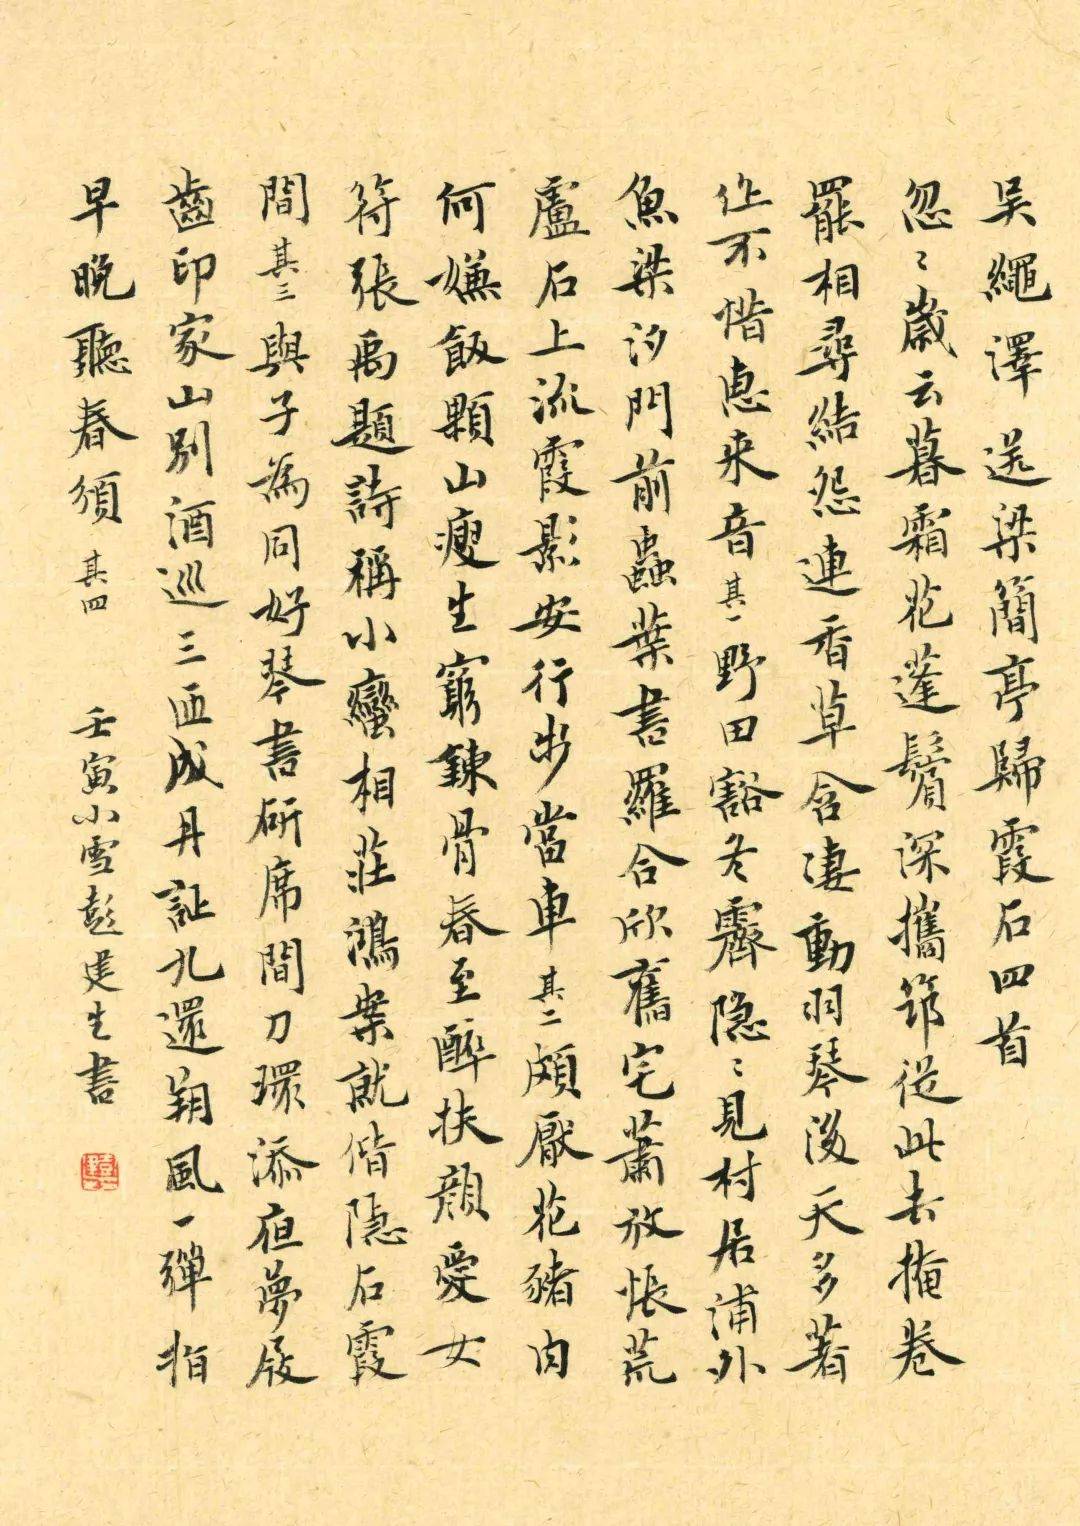 吳繩澤送梁簡亭歸霞石四首
忽〻歲云暮霜花蓬鬢深攜筇從此去掩卷
罷相尋結怨連香草含淒動羽琴後天多著
作不惜惠来音其一野田豁冬霽隐〻見村居浦外
魚梁汐門前蟲葉書羅含欣舊宅蕭放悵荒
廬石上流霞影安行步當車其二頗厭花豬肉
何嫌飯顆山瘦生窮鍊骨春至醉扶顏愛女
符張禹題詩稱小蠻相莊鴻案就偕隱石霞
間其三與子為同好琴書研席間刀環添夜夢屐
齒印家山別酒巡三匝成丹証九還朔風一彈指
早晚聽春須其四
壬寅小雪彭建生書